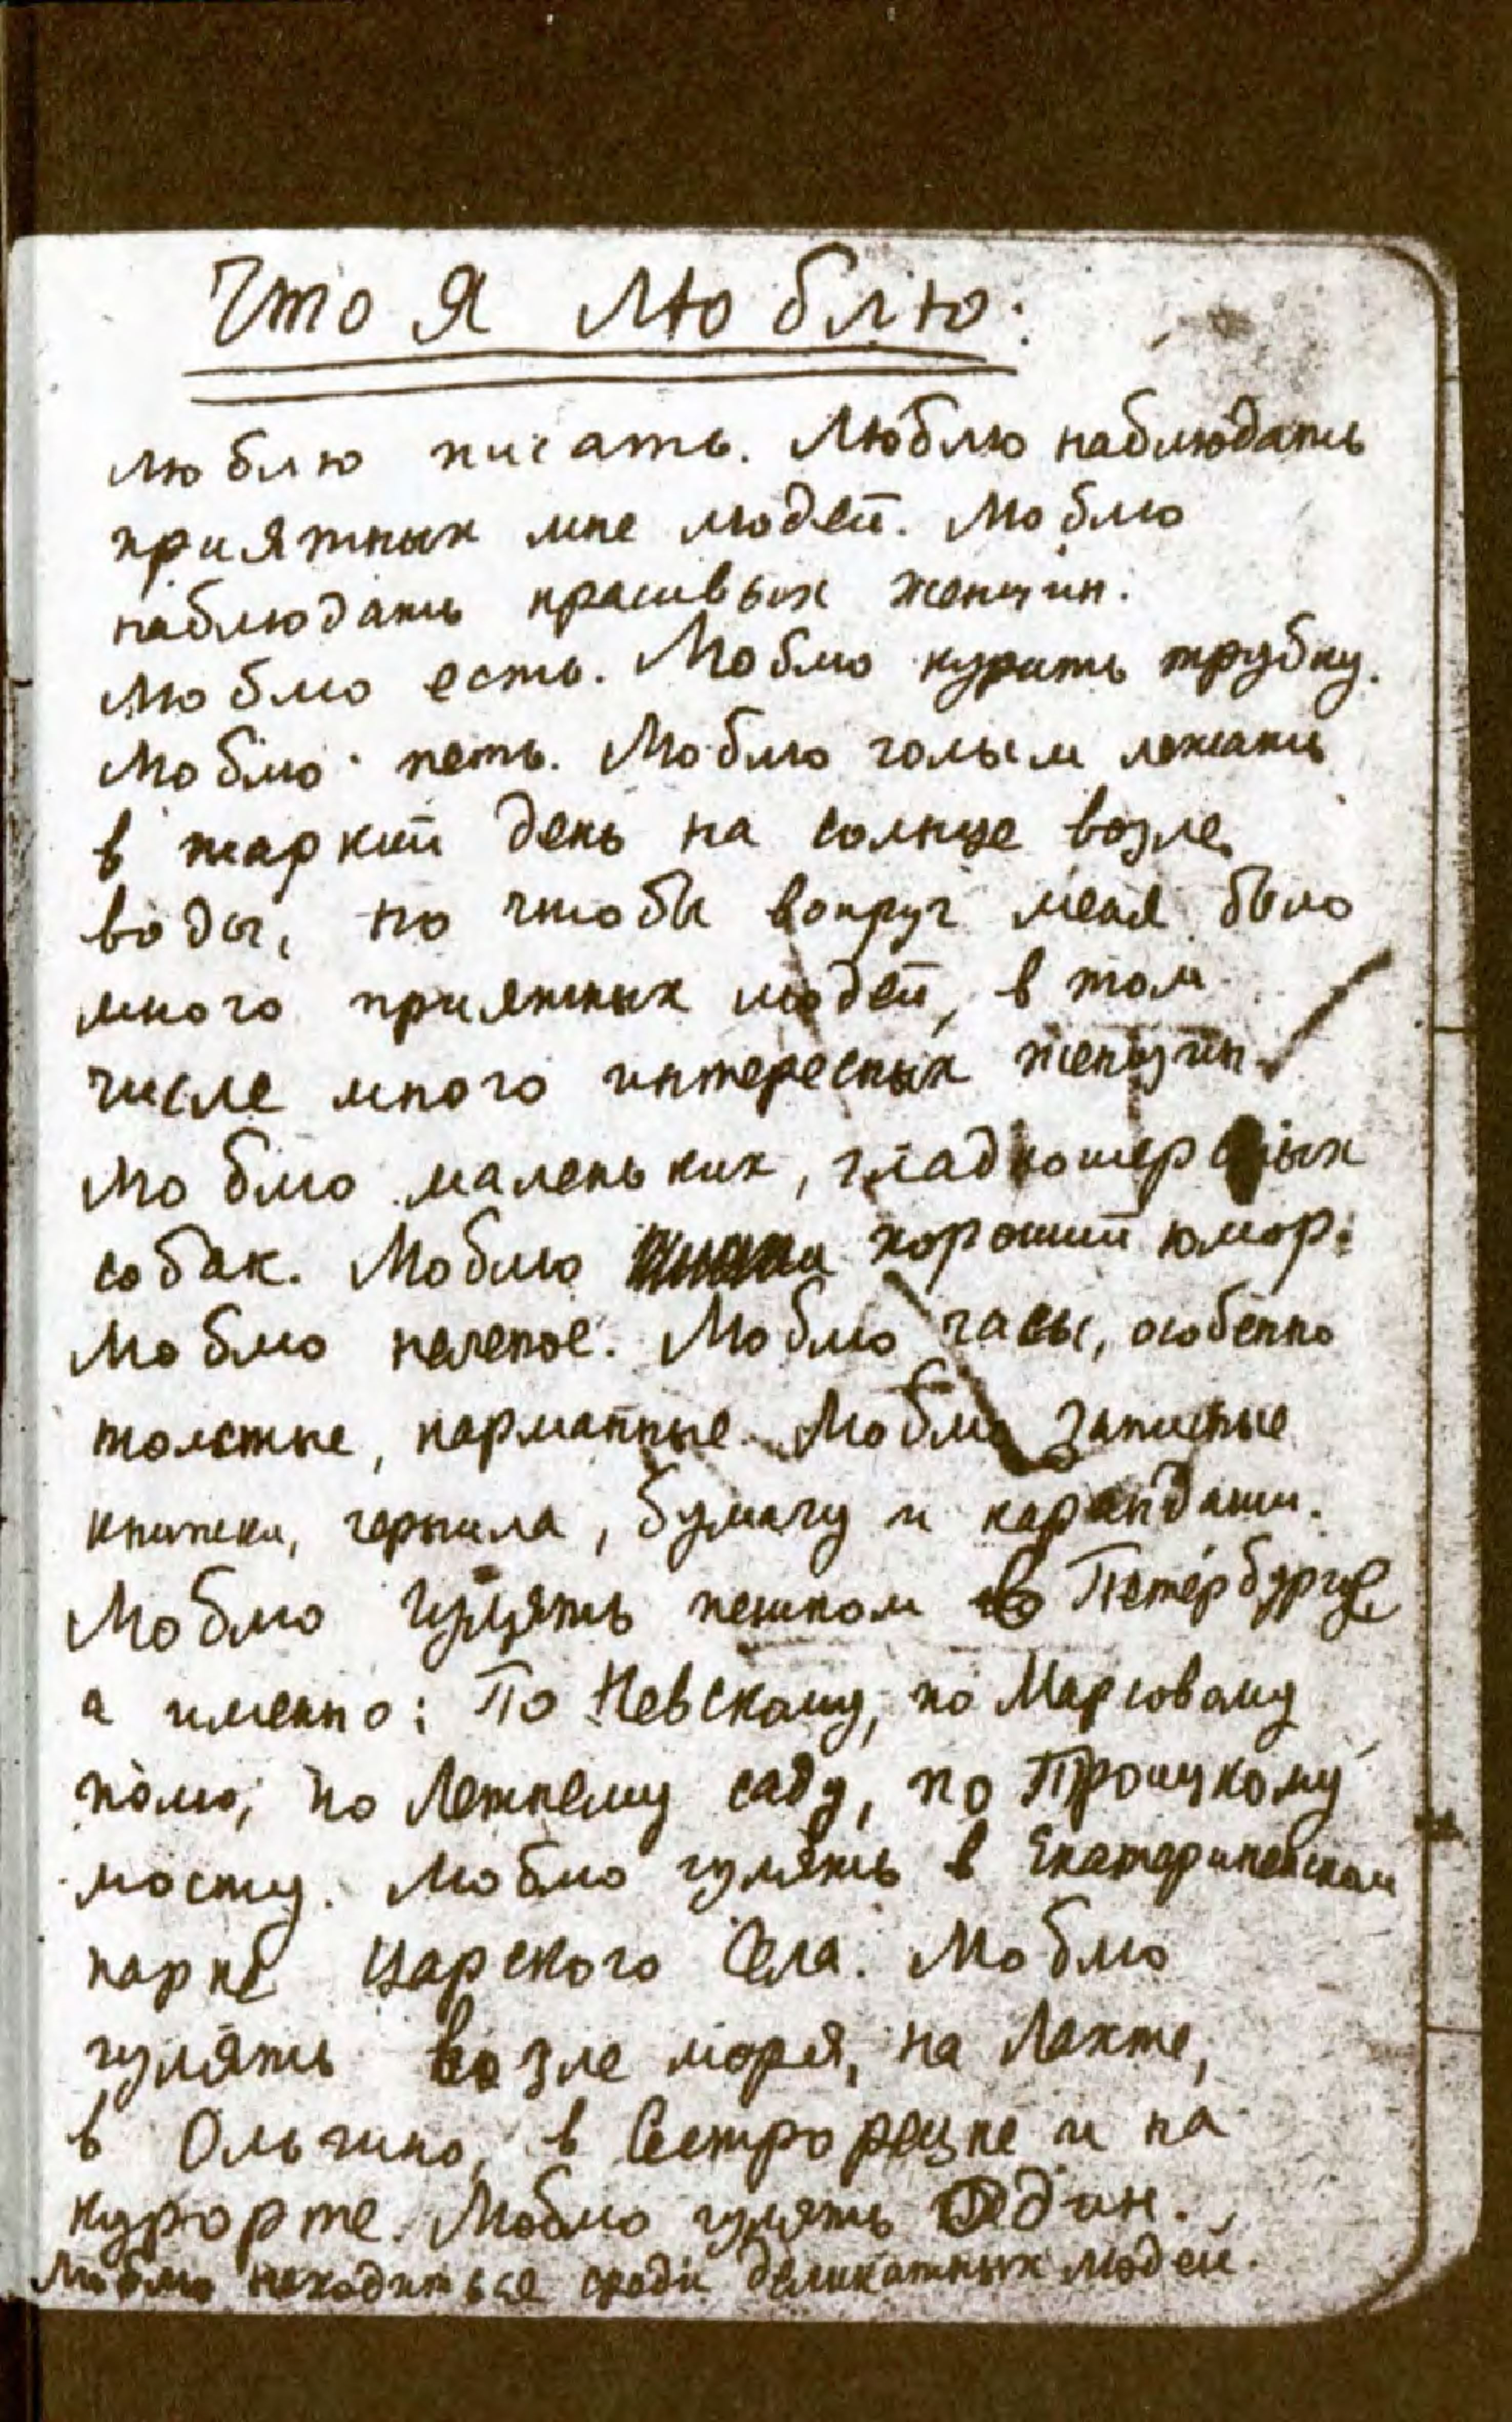 Что я люблю:
люблю писать. Люблю наблюдать
приятных мне людей. Люблю
наблюдать красивых женщин.
Люблю есть. Люблю курить трубку.
Люблю петь. Люблю голым лежать
в жаркий день на солнце возле
воды, но чтобы вокруг меня было
много приятных людей, в том
числе много интересных женщин.
Люблю маленьких, гладкошерстых
собак. Люблю хороший юмор.
Люблю нелепое. Люблю часы, особенно
толстые, карманные. Люблю записные
книжки, чернила, бумагу и карандаши.
Люблю гулять пешком в Петербурге
а именно: По Невскому, по Марсовому
полю, по Летнему саду, по Троицкому
мосту. Люблю гулять в Екатерининском
парке Царского Села. Люблю
гулять возле моря, на Лахте,
в Ольгино, в Сестрорецке и на
курорте. Люблю гулять один.
Люблю находиться среди деликатных людей.